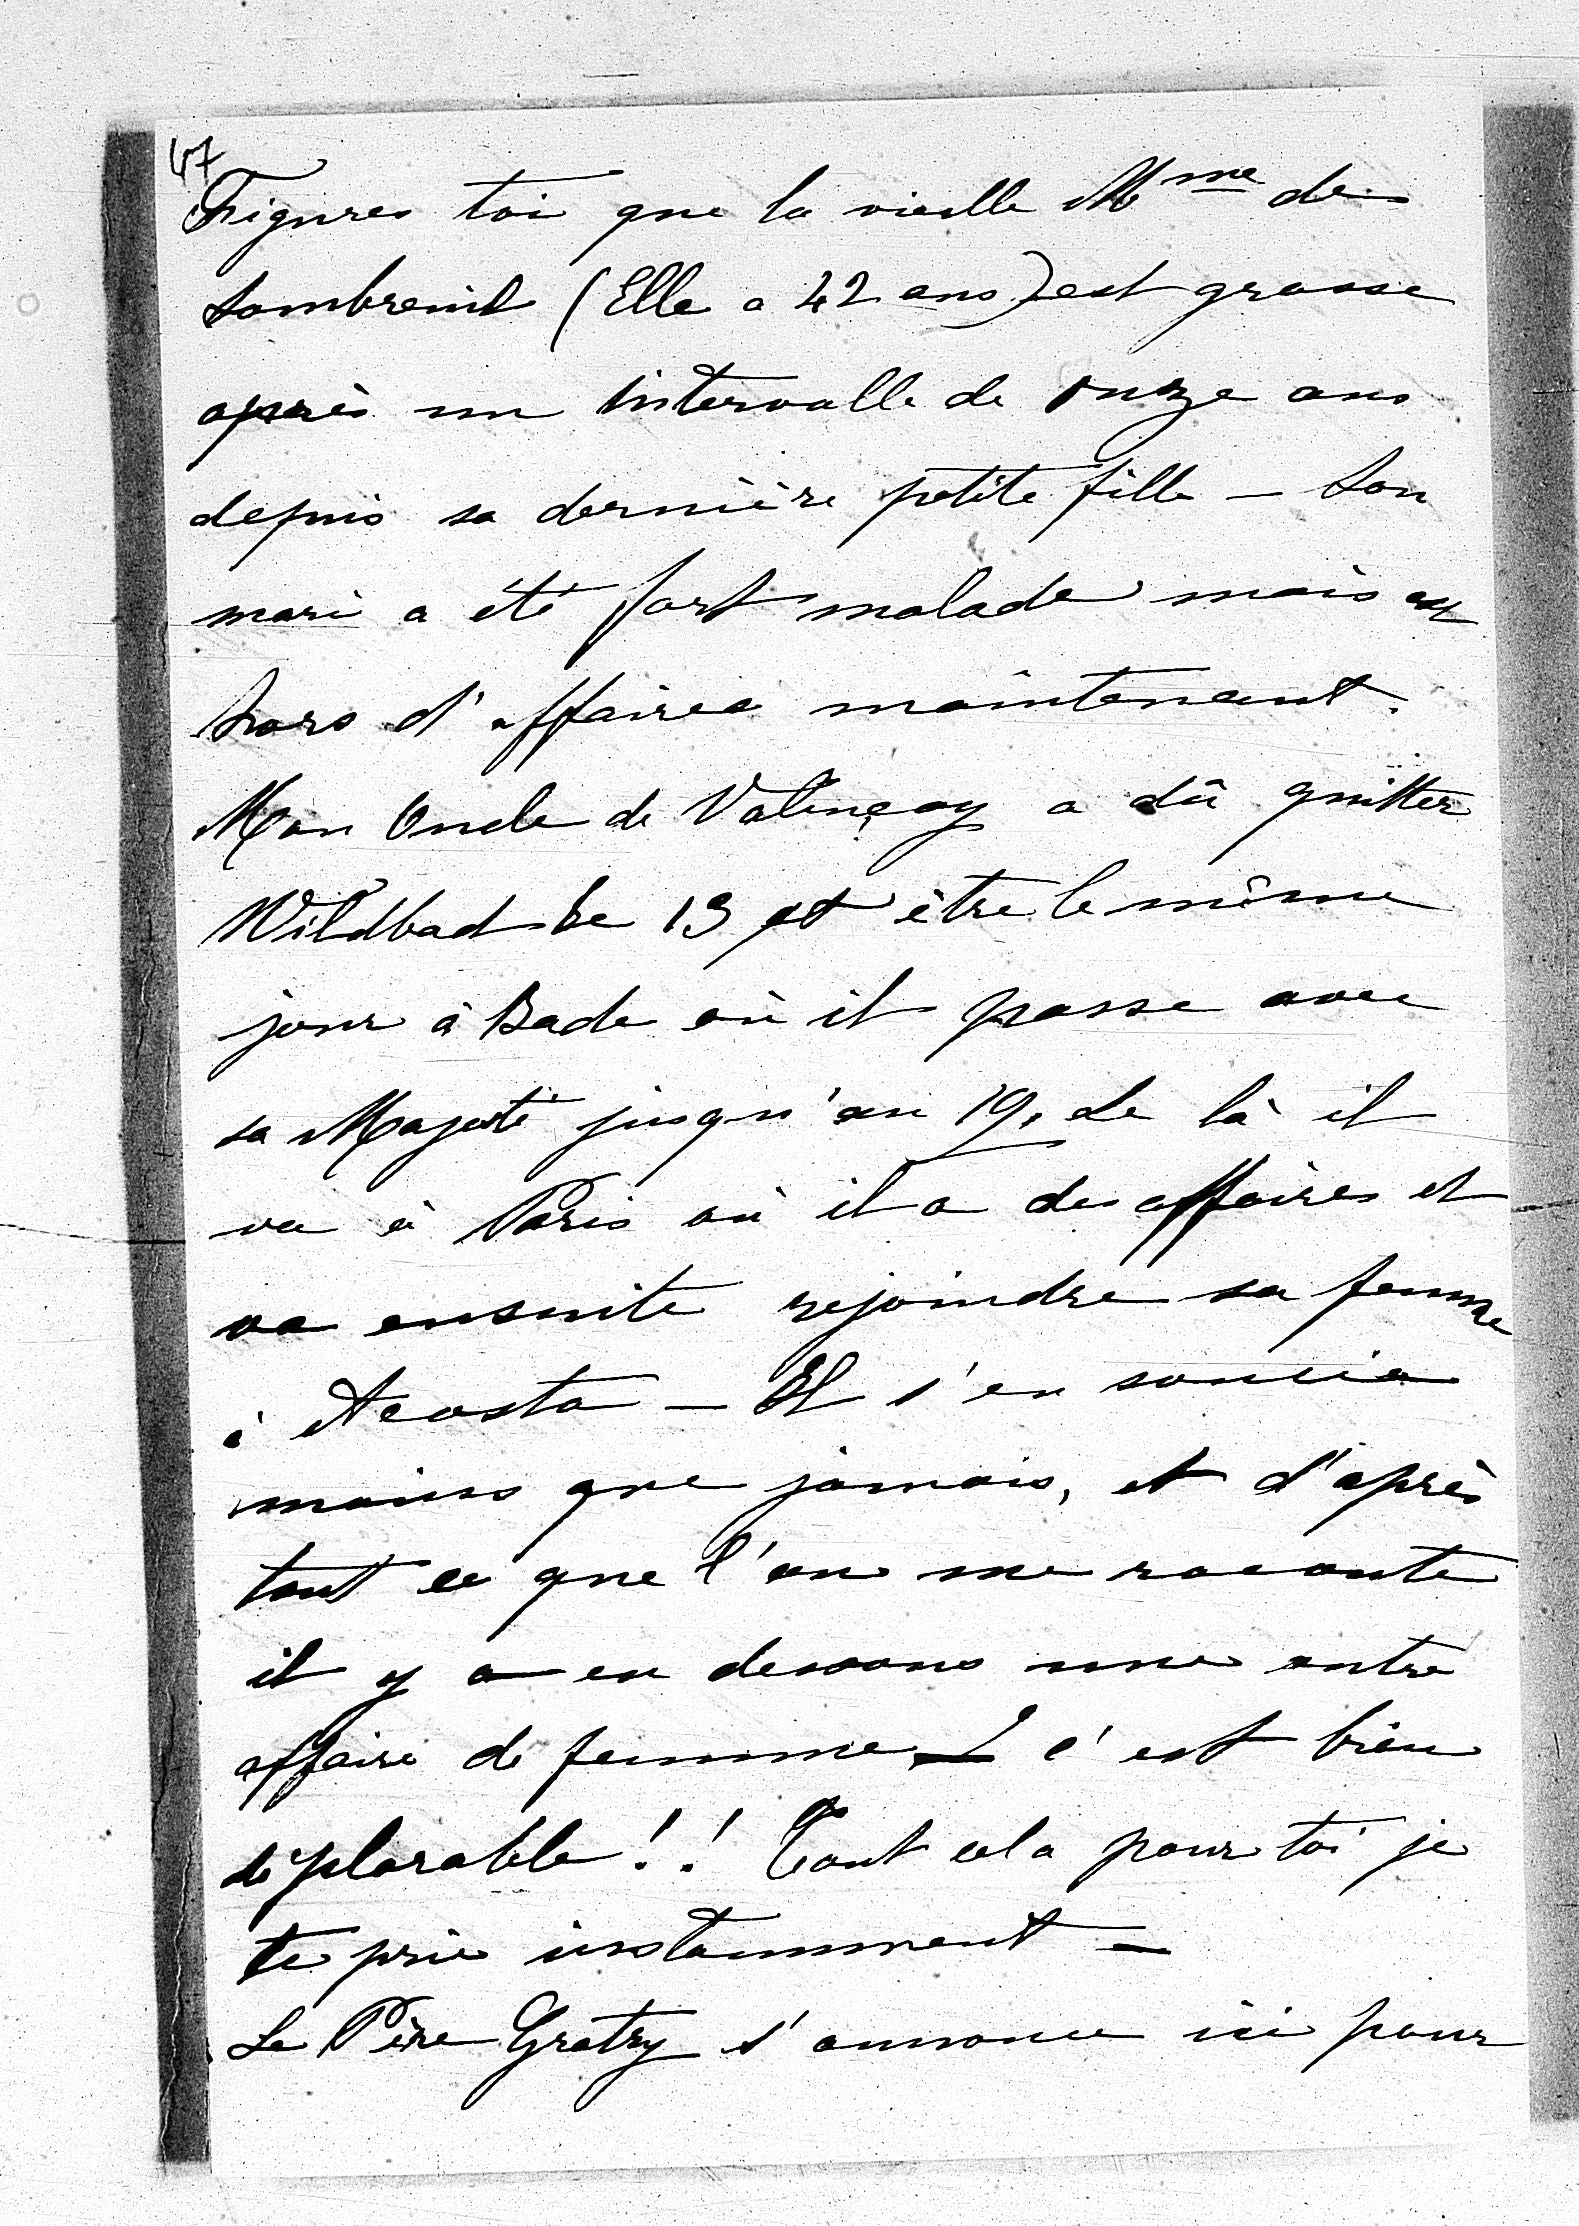 47
Figures toi que la vieille Mme de
Sombreuil (Elle a 42 ans) est grosse
après un intervalle de onze ans
depuis sa dernière petite fille – Son
mari a été fort malade mais est
hors d'affaires maintenant.
Mon Oncle de Valençay a dû quitter
Wildbad le 13 et être le même
jour à Bade où il passe avec
sa Majesté jusqu'au 19. de là il
va à Paris où il a des affaires et
va ensuite rejoindre sa femme
à Acosta – Il s'en soucie
moins que jamais, et d'après
tout ce que l'on me raconte
il y a en dessous une autre
affaire de femme – c'est bien
déplorable !! Tout cela pour toi je
te prie instamment –
Le Père Gratry s'annonce ici pour